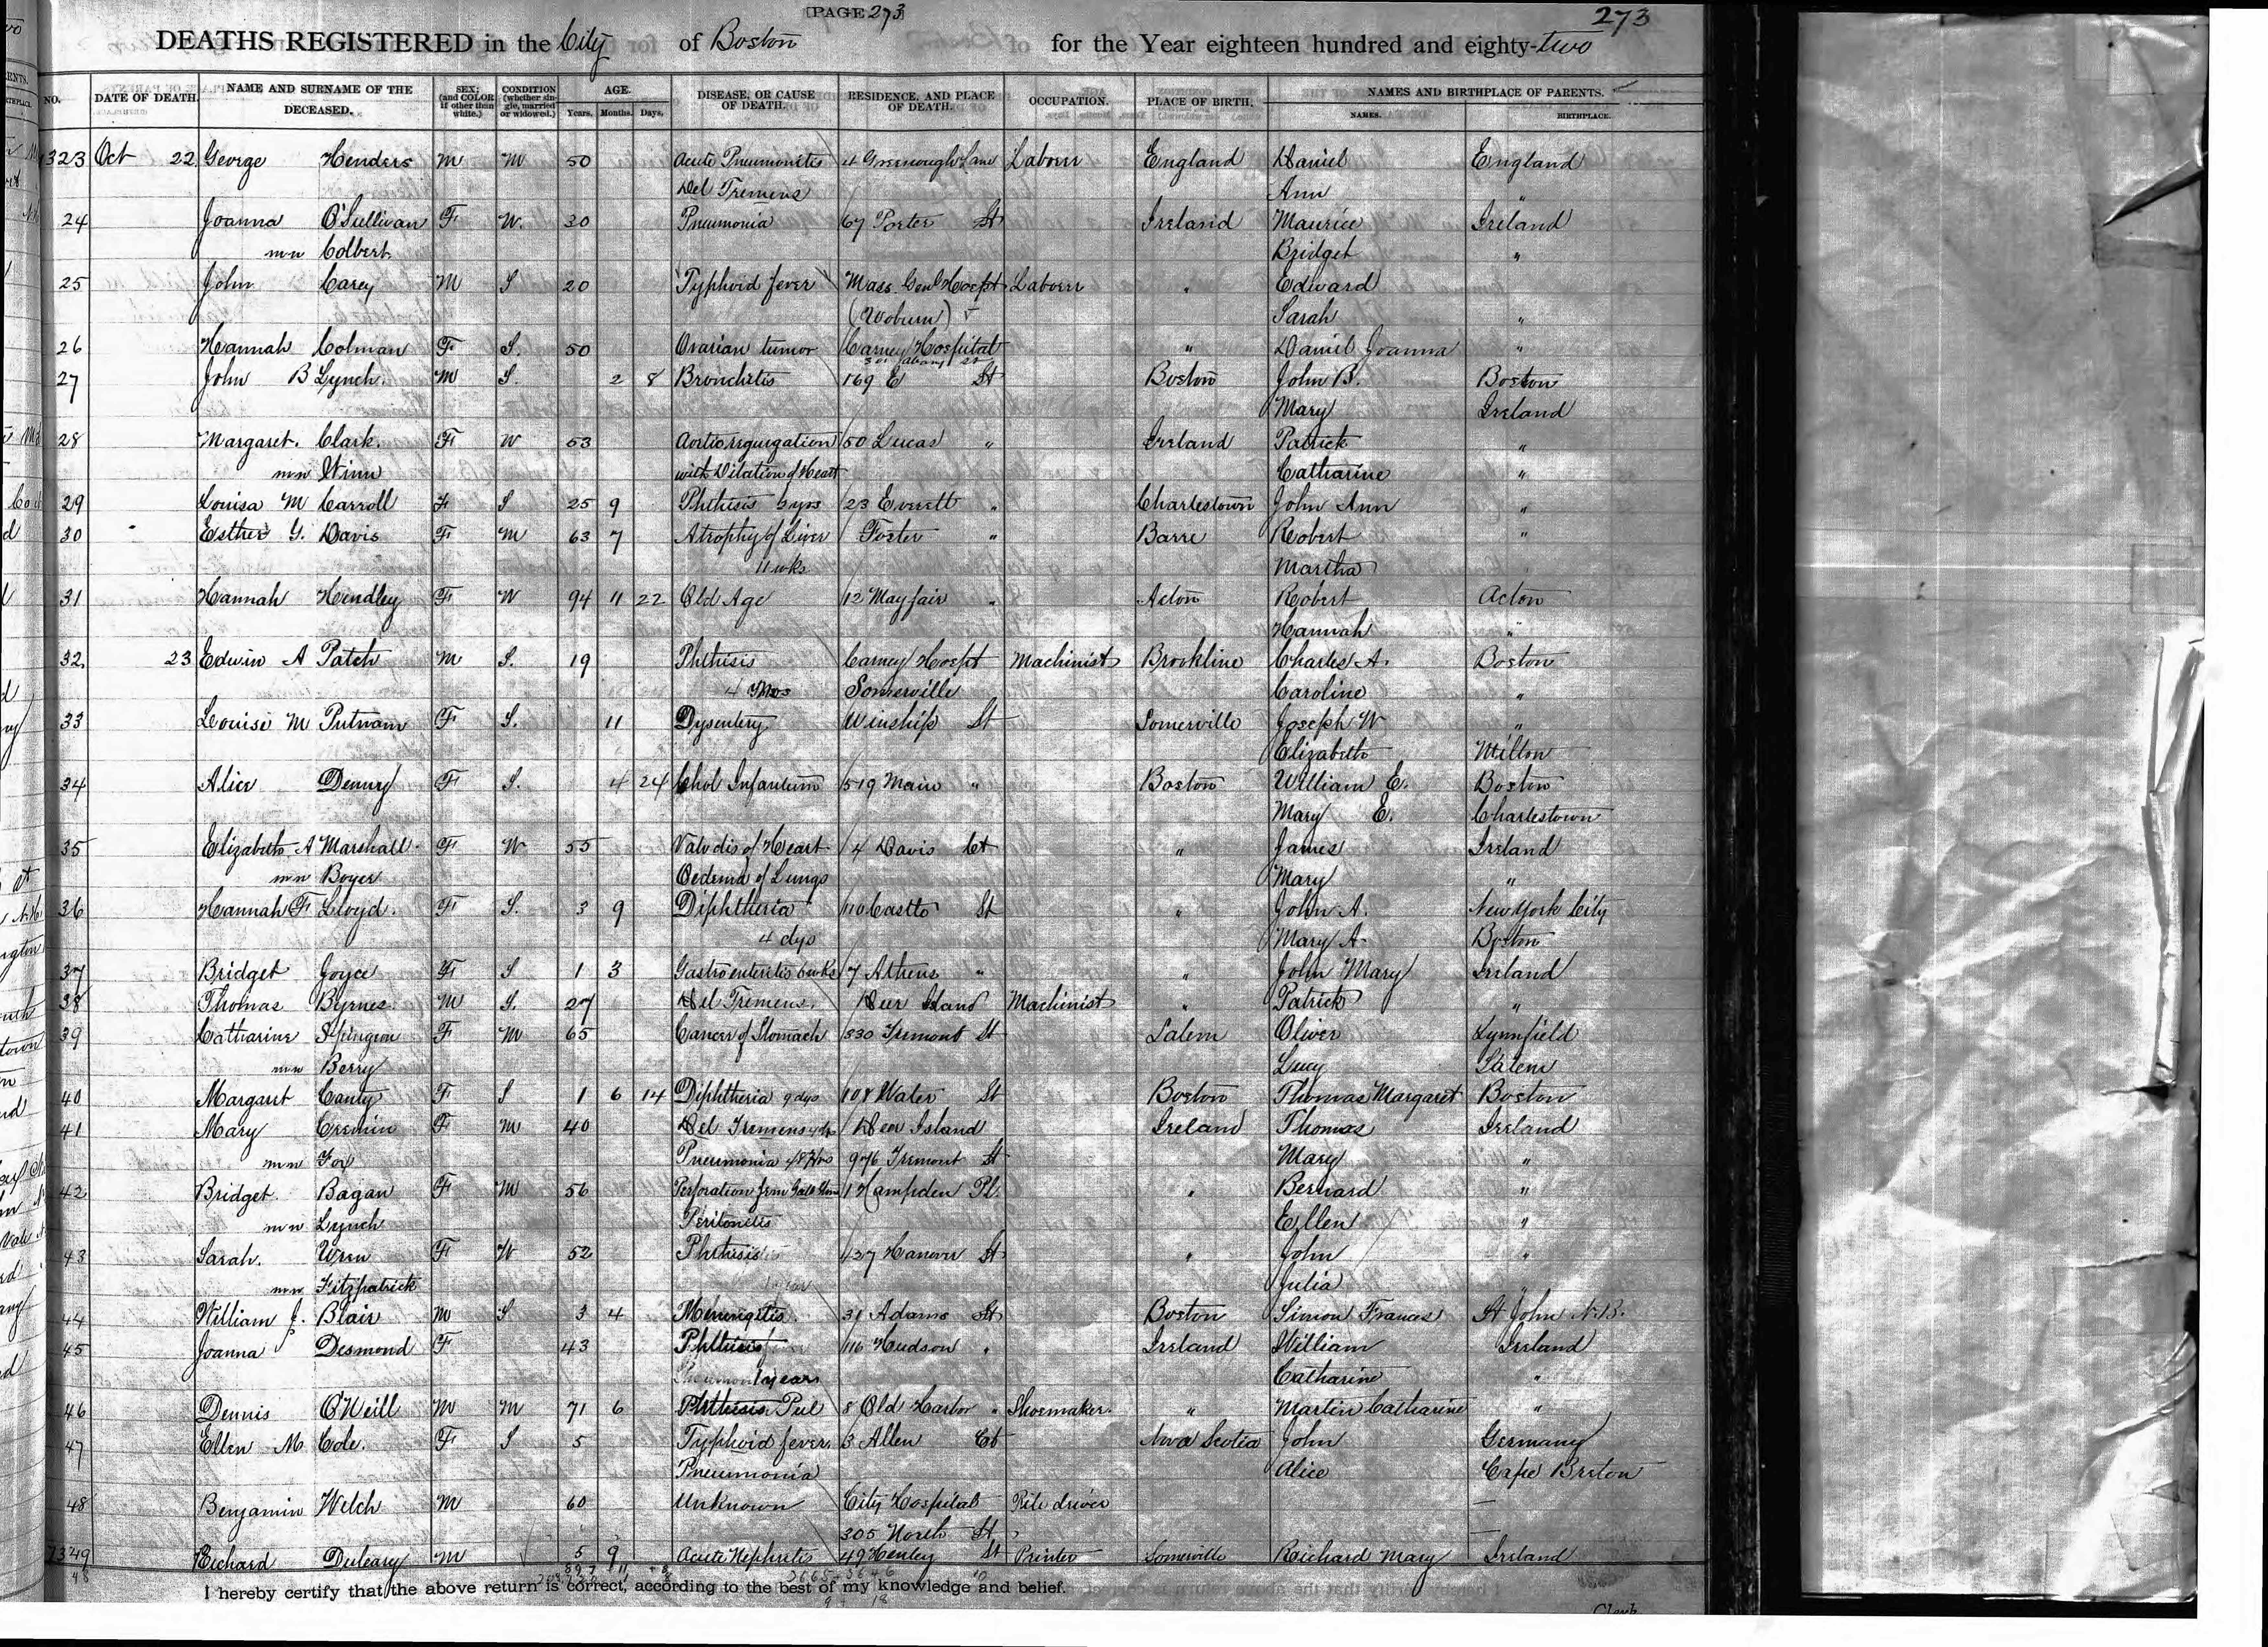 [PAGE 273]
273
DEATHS REGISTERED in the City of Boston for the Year eighteen hundred and eighty-two
NO. DATE OF DEATH. NAME AND SURNAME OF THE DECEASED. SEX; (and COLOR if other than white.) CONDITION (whether single, married or widowed.) AGE. Years. Months. Days. DISEASE, OR CAUSE OF DEATH. RESIDENCE, AND PLACE OF DEATH. OCCUPATION. PLACE OF BIRTH. NAMES AND BIRTHPLACE OF PARENTS. NAMES. BIRTHPLACE.
7323 Oct 22 George Henders M M 50 Acute Pneumonitis 4 Greenough Lane Laborer England Daniel England
Del Tremens Ann "
24 Joanna O'Sullivan F W. 30 Pneumonia 67 Porter St Ireland Maurice Ireland
m n Colbert Bridget "
25 John Carey M S 20 Typhoid fever Mass. Genl Hospt Laborer " Edward
(Woburn) Sarah "
26 Hannah Colman F S. 50 Ovarian tumor Carney Hospital " Daniel Joanna "
27 John B Lynch. M S. 2 8 Bronchitis 169 E St Boston John B. Boston
Mary Ireland
28 Margaret. Clark. F W 53 Aortic regurgation 50 Lucas " Ireland Patrick "
m n Winn with Dilation of Heart Catharine "
29 Louisa M Carroll F S 25 9 Phthisis 23 Everett " Charlestown John Ann "
30 Esther G. Davis F M 63 7 Atrophy of Liver Foster " Barre Robert "
11 wks Martha
31 Hannah Hendley F W 94 11 22 Old Age 12 Mayfair " Acton Robert Acton
Hannah "
32. 23 Edwin A Patch M S. 19 Phthisis Carney Hospt Machinist Brookline Charles A. Boston
4 mos Somerville Caroline "
33 Louise M Putnam F S. 11 Dysentery Winship St Somerville Joseph W "
Elizabeth Milton
34 Alice Denny F S. 4 24 Chol Infantum 519 Main " Boston William E. Boston
Mary E. Charlestown
35 Elizabeth A Marshall F W 55 Valv dis of Heart 4 Davis Ct " James Ireland
m n Boyer Oedema of Lungs Mary "
36 Hannah F Lloyd. F S. 3 9 Diphtheria 110 Castle St " John A. New York City
4 dys Mary A. Boston
37 Bridget Joyce F S 1 3 Gastro enteritis 6 wks 7 Athens " " John Mary Ireland
38 Thomas Byrnes M S. 27 Del Tremens. Deer Island Machinist " Patrick "
39 Catharine F M 65 Cancer of Stomach 830 Tremont St Salem Oliver Lynnfield
m n Berry Lucy Salem
40 Margaret Canty F S 1 6 14 Diphtheria 9 dys 108 Water St Boston Thomas Margaret Boston
41 Mary Cremin F M 40 Del Tremens Deer Island Ireland Thomas Ireland
m n Fox Pneumonia 48 Hrs 976 Tremont St Mary "
42 Bridget. Bagan F M 56 Perforation from Gall Stone 1 Hampden Pl. " Bernard "
m n Lynch Peritonitis Ellen "
43 Sarah. Wren F W 52 Phthisis 427 Hanover St " John "
m n Fitzpatrick Julia "
44 William J. Blair M S 3 4 Meningitis. 31 Adams St Boston Simon Frances St John N.B.
45 Joanna Desmond F 43 Phthisis 116 Hudson " Ireland William Ireland
1 year Catharine "
46 Dennis O'Neill M M 71 6 Phthisis Pul 8 Old Harbor " Shoemaker. " Martin Catharine "
47 Ellen M Cole. F S 5 Typhoid fever 3 Allen Ct Nova Scotia John Germany
Pneumonia Alice Cape Breton
48 Benjamin Welch M 60 Unknown City Hospital Pile driver —
305 North St —
7349 Richard Duleary M 5 9 Acute Nephritis 49 Henley St Printer Somerville Richard Mary Ireland
I hereby certify that the above return is correct, according to the best of my knowledge and belief.
Clerk